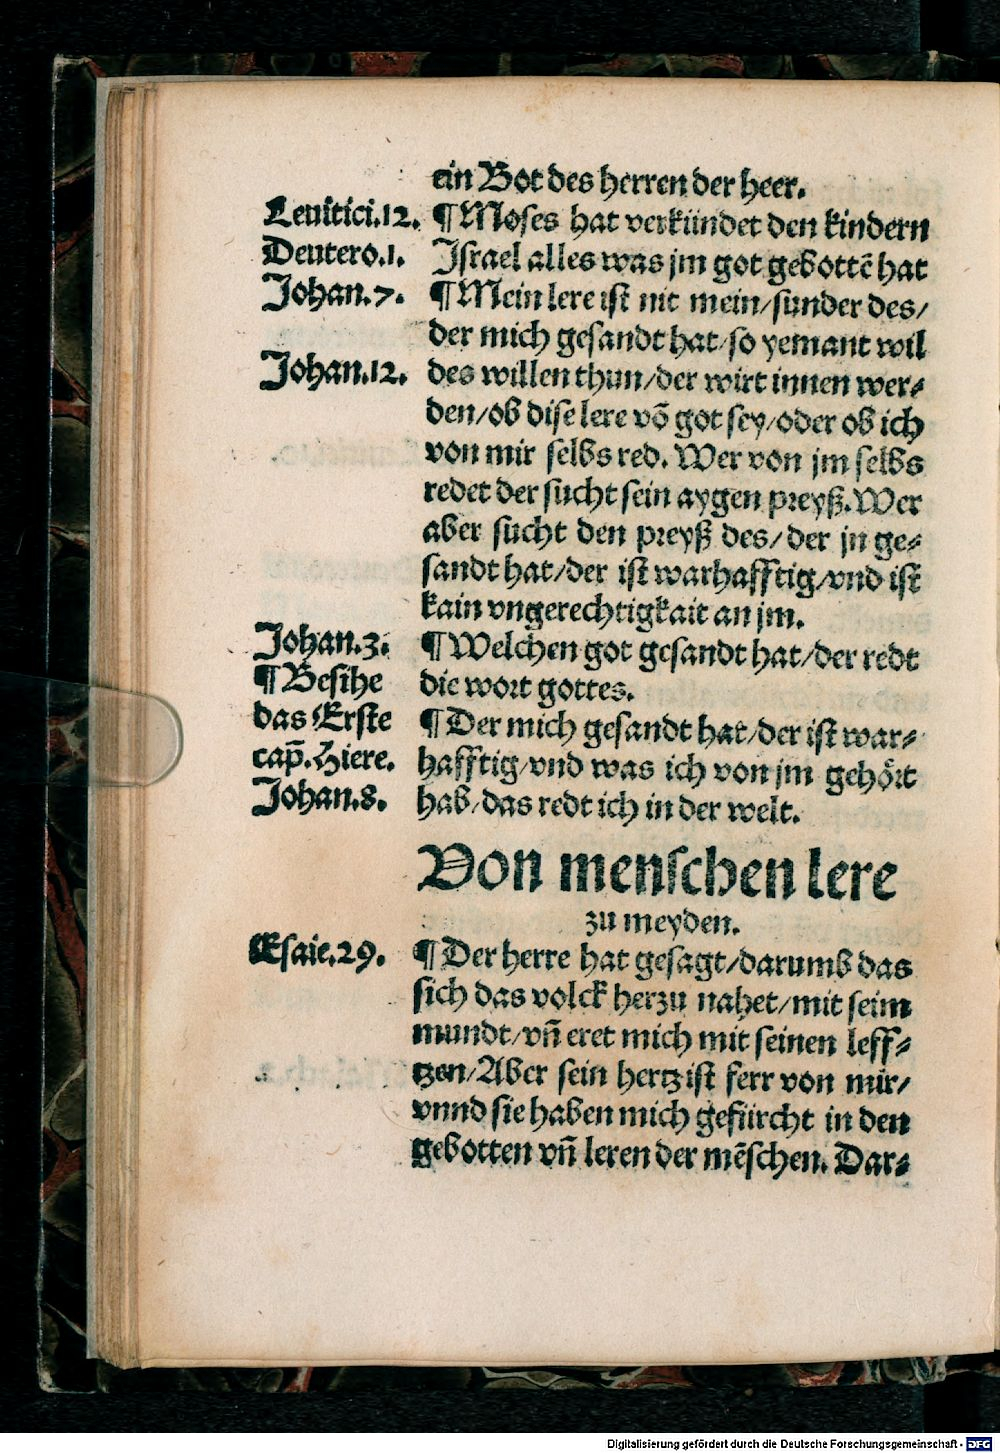 ein Bot des herren der heer.
Leuitici.12. ¶ Moses hat verkündet den kindern
Deutero.1. Israel alles was jm got gebottē hat
Johan.7. ¶ Mein lere ist nit mein/sunder des/
der mich gesandt hat/so yemant wil
Johan.12. des willen thun/der wirt innen wer⸗
den/ob dise lere vō got sey/oder ob ich
von mir selbs red. Wer von jm selbs
redet der sucht sein aygen preyß. Wer
aber sucht den preyß des/der jn ge⸗
sandt hat/der ist warhafftig/vnd ist
kain vngerechtigkait an jm.
Johan.3. ¶ Welchen got gesandt hat/der redt
¶ Besihe die wort gottes.
das Erste ¶ Der mich gesandt hat/der ist war⸗
cap̄. Hiere. hafftig/vnd was ich von jm gehört
Johan.8. hab/das redt ich in der welt.
Von menschen lere
zu meyden.
Esaie.29. ¶ Der herre hat gesagt/darumb das
sich das volck herzu nahet/mit seim
mundt/vn̄ eret mich mit seinen leff⸗
tzen/Aber sein hertz ist ferr von mir/
vnnd sie haben mich gefürcht in den
gebotten vn̄ leren der mēschen. Dar⸗
Digitalisierung gefördert durch die Deutsche Forschungsgemeinschaft - DFG